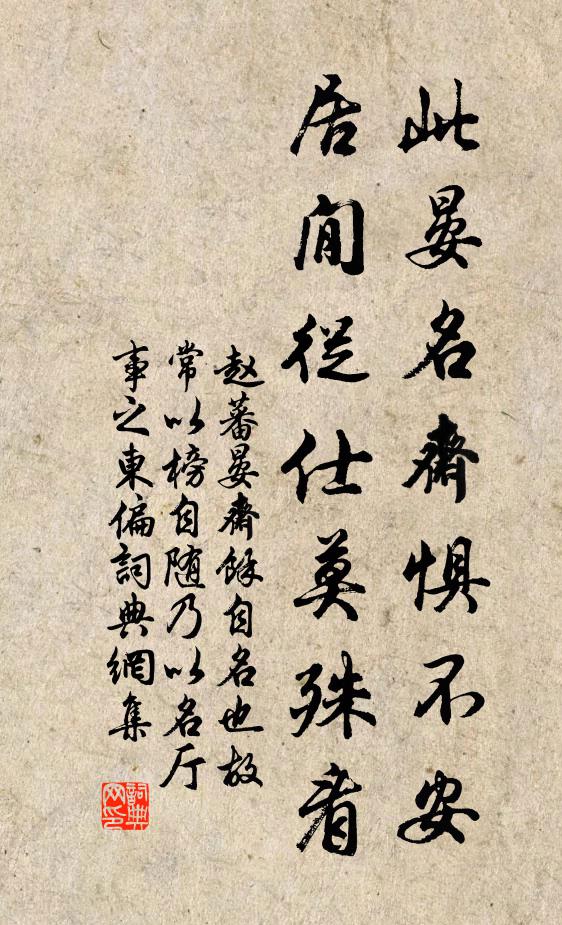 此晏名齋惧不安
居閒從仕莫殊看
赵蕃晏齋餘自名也故
常以榜自随乃以名厅
事之東偏詞典網集
詞典网印